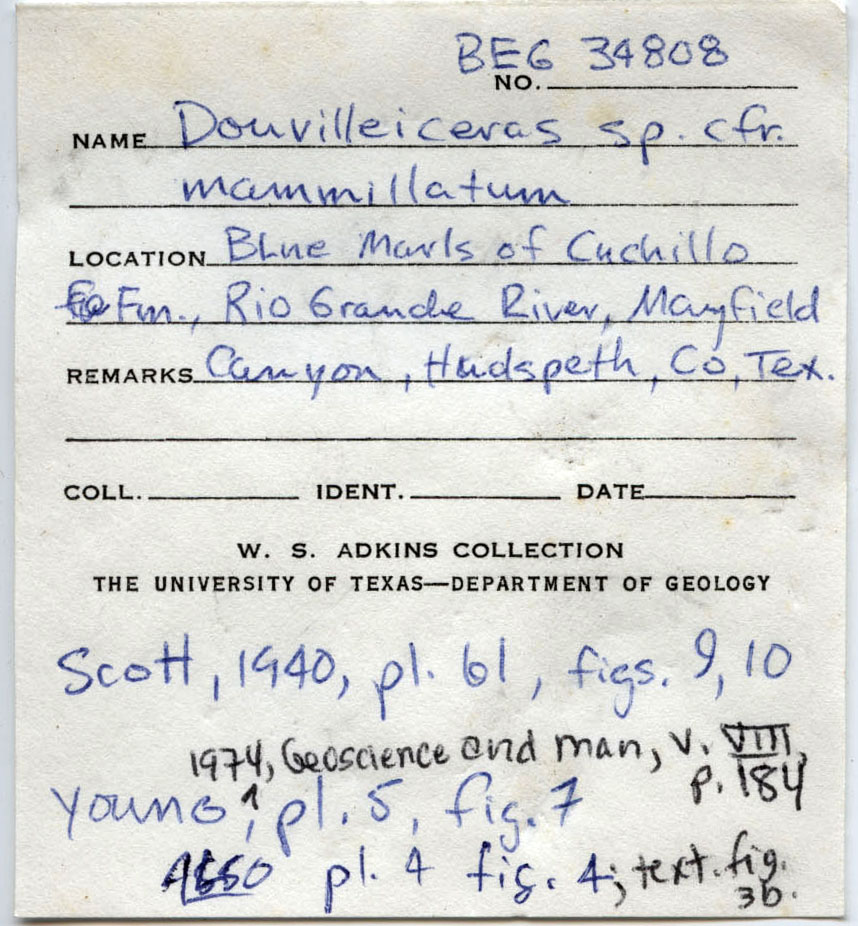 BEG 34808
NO.
NAME Douvilleiceras sp. cfr.
mammillatum
LOCATION Blue Marls of Cuchillo
Fm., Rio Grande River, Mayfield
REMARKS Canyon, Hudspeth, Co, Tex.
COLL. IDENT. DATE
W. S. ADKINS COLLECTION
THE UNIVERSITY OF TEXAS—DEPARTMENT OF GEOLOGY
Scott, 1940, pl. 61, figs. 9, 10
1974, Geoscience and man, v. VIII,
p. 184
Young, pl. 5, fig. 7
pl. 4 fig. 4; text. fig.
3b.